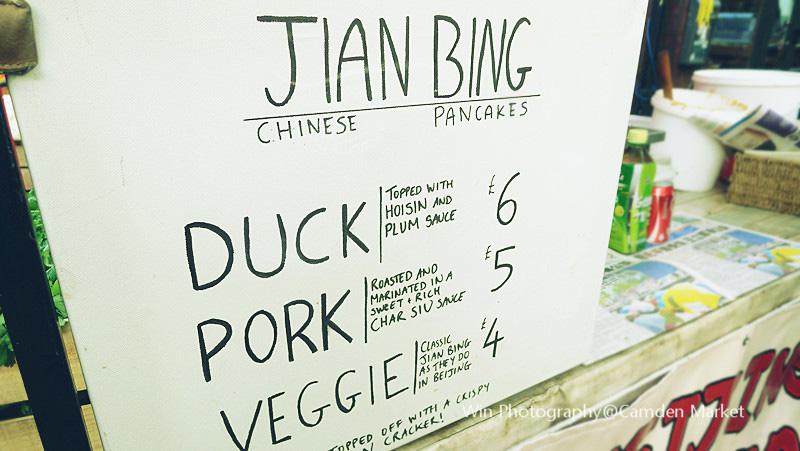 JIAN BING
CHINESE PANCAKES
DUCK
TOPPED WITH
HOISIN AND
PLUM SAUCE
£6
PORK
ROASTED AND
MARINATED IN A
SWEET + RICH
CHAR SIU SAUCE
£5
VEGGIE
CLASSIC
JIAN BING
AS THEY DO
IN BEIJING
£4
TOPPED OFF WITH A CRISPY
CRACKER!
Win Photography@Camden Market